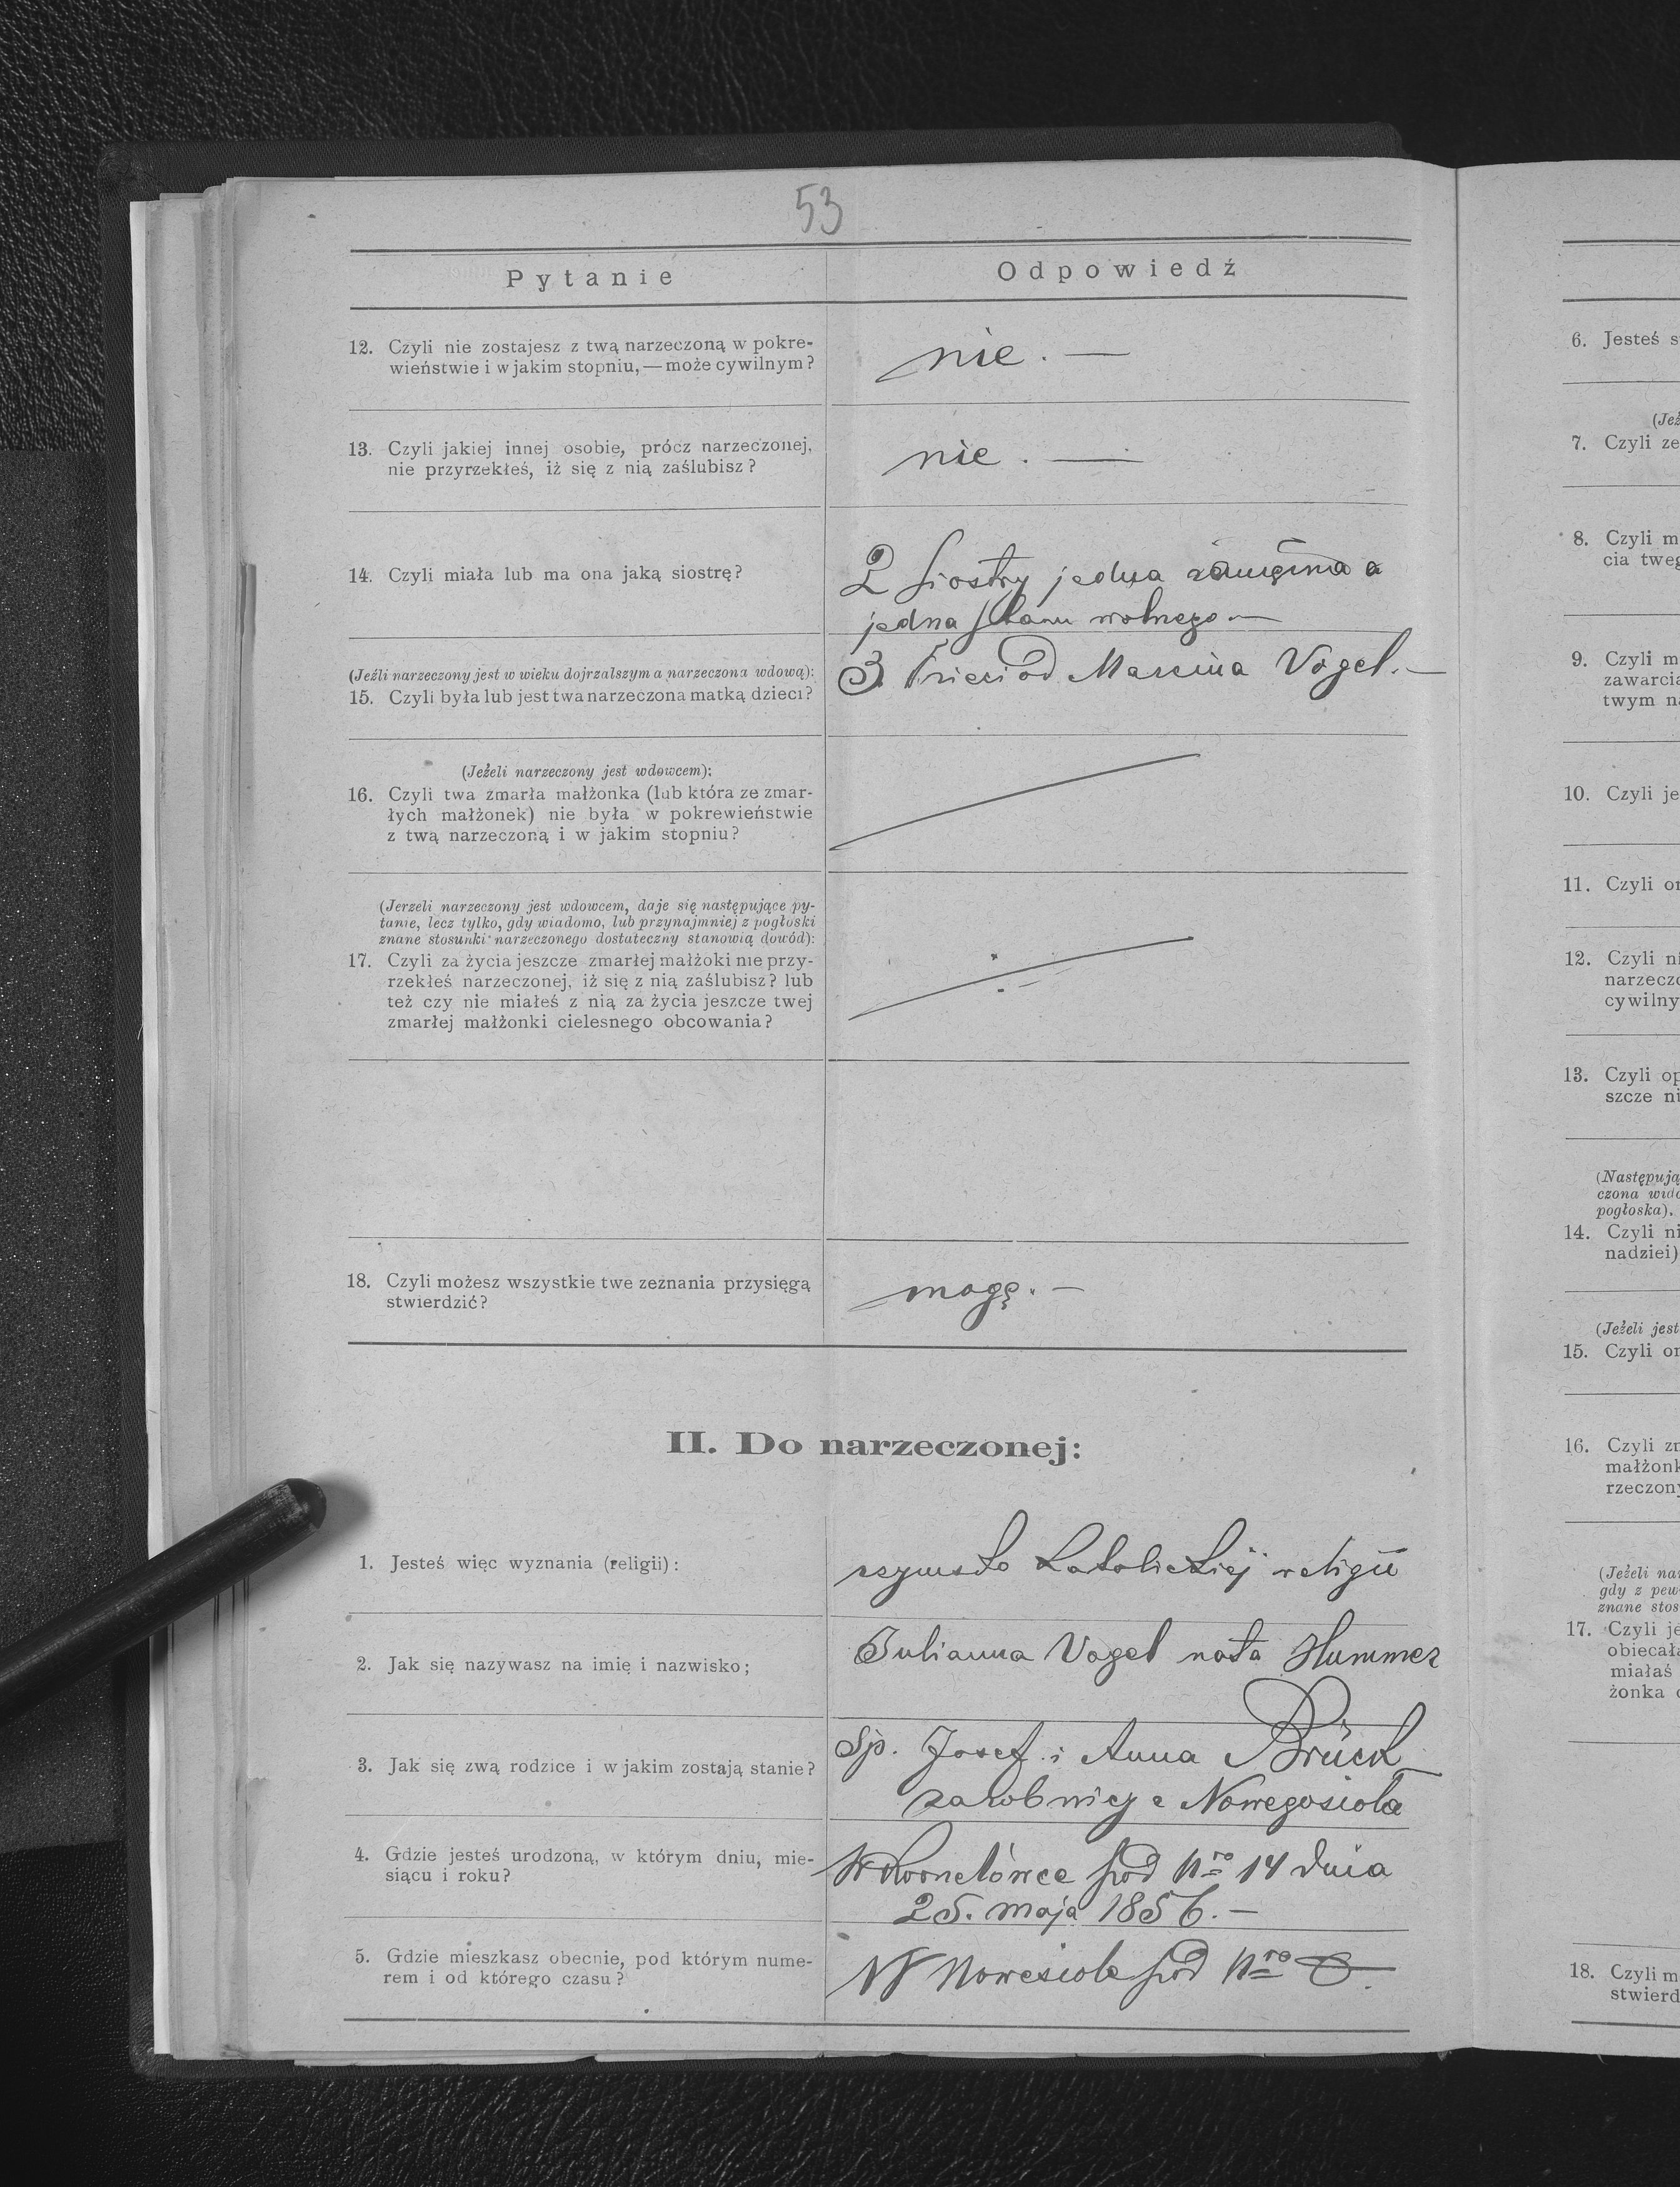 53
Pytanie
Odpowiedź
12. Czyli nie zostajesz z twą narzeczoną w pokre-
wieństwie i w jakim stopniu, — może cywilnym?
nie. —
13. Czyli jakiej innej osobie, prócz narzeczonej,
nie przyrzekłeś, iż się z nią zaślubisz?
nie. —
14. Czyli miała lub ma ona jaką siostrę?
2 siostry jedna zamęzna a
jedna stanu wolnego —
(Jeźli narzeczony jest w wieku dojrzalszym a narzeczona wdową):
15. Czyli była lub jest twa narzeczona matką dzieci?
3 Dzieci od Marcina Vogel. —
(Jeżeli narzeczony jest wdowcem);
16. Czyli twa zmarła małżonka (lub która ze zmar-
łych małżonek) nie była w pokrewieństwie
z twą narzeczoną i w jakim stopniu?
(Jerzeli narzeczony jest wdowcem, daje się następujące py-
tanie, lecz tylko, gdy wiadomo, lub przynajmniej z pogłoski
znane stosunki narzeczonego dostateczny stanowią dowód):
17. Czyli za życia jeszcze zmarłej małżoki nie przy-
rzekłeś narzeczonej, iż się z nią zaślubisz? lub
też czy nie miałeś z nią za życia jeszcze twej
zmarłej małżonki cielesnego obcowania?
18. Czyli możesz wszystkie twe zeznania przysięgą
stwierdzić?
mogę. —
II. Do narzeczonej:
1. Jesteś więc wyznania (religii):
rzymsko katolickiej religii
2. Jak się nazywasz na imię i nazwisko;
Julianna Vogel nata Hummer
3. Jak się zwą rodzice i w jakim zostają stanie?
Sp. Josef i Anna Brück
zarobnicy z Nowegosiola
4. Gdzie jesteś urodzoną, w którym dniu, mie-
siącu i roku?
W Kornelówce pod Nro 14 dnia
25. maja 1856. —
5. Gdzie mieszkasz obecnie, pod którym nume-
rem i od którego czasu?
W Nowesiole pod Nro
6. Jesteś
(Jeż
7. Czyli ze
8. Czyli m
cia tweg
9. Czyli m
zawarcia
twym na
10. Czyli je
11. Czyli on
12. Czyli ni
narzeczo
cywilny
13. Czyli op
szcze ni
(Następują
czona wido
pogłoska).
14. Czyli ni
nadziei)
(Jeżeli jest
15. Czyli on
16. Czyli zm
małżonk
rzeczony
(Jeżeli nar
gdy z pew
znane stos
17. Czyli je
obiecała
miałaś
żonka
18. Czyli m
stwierd